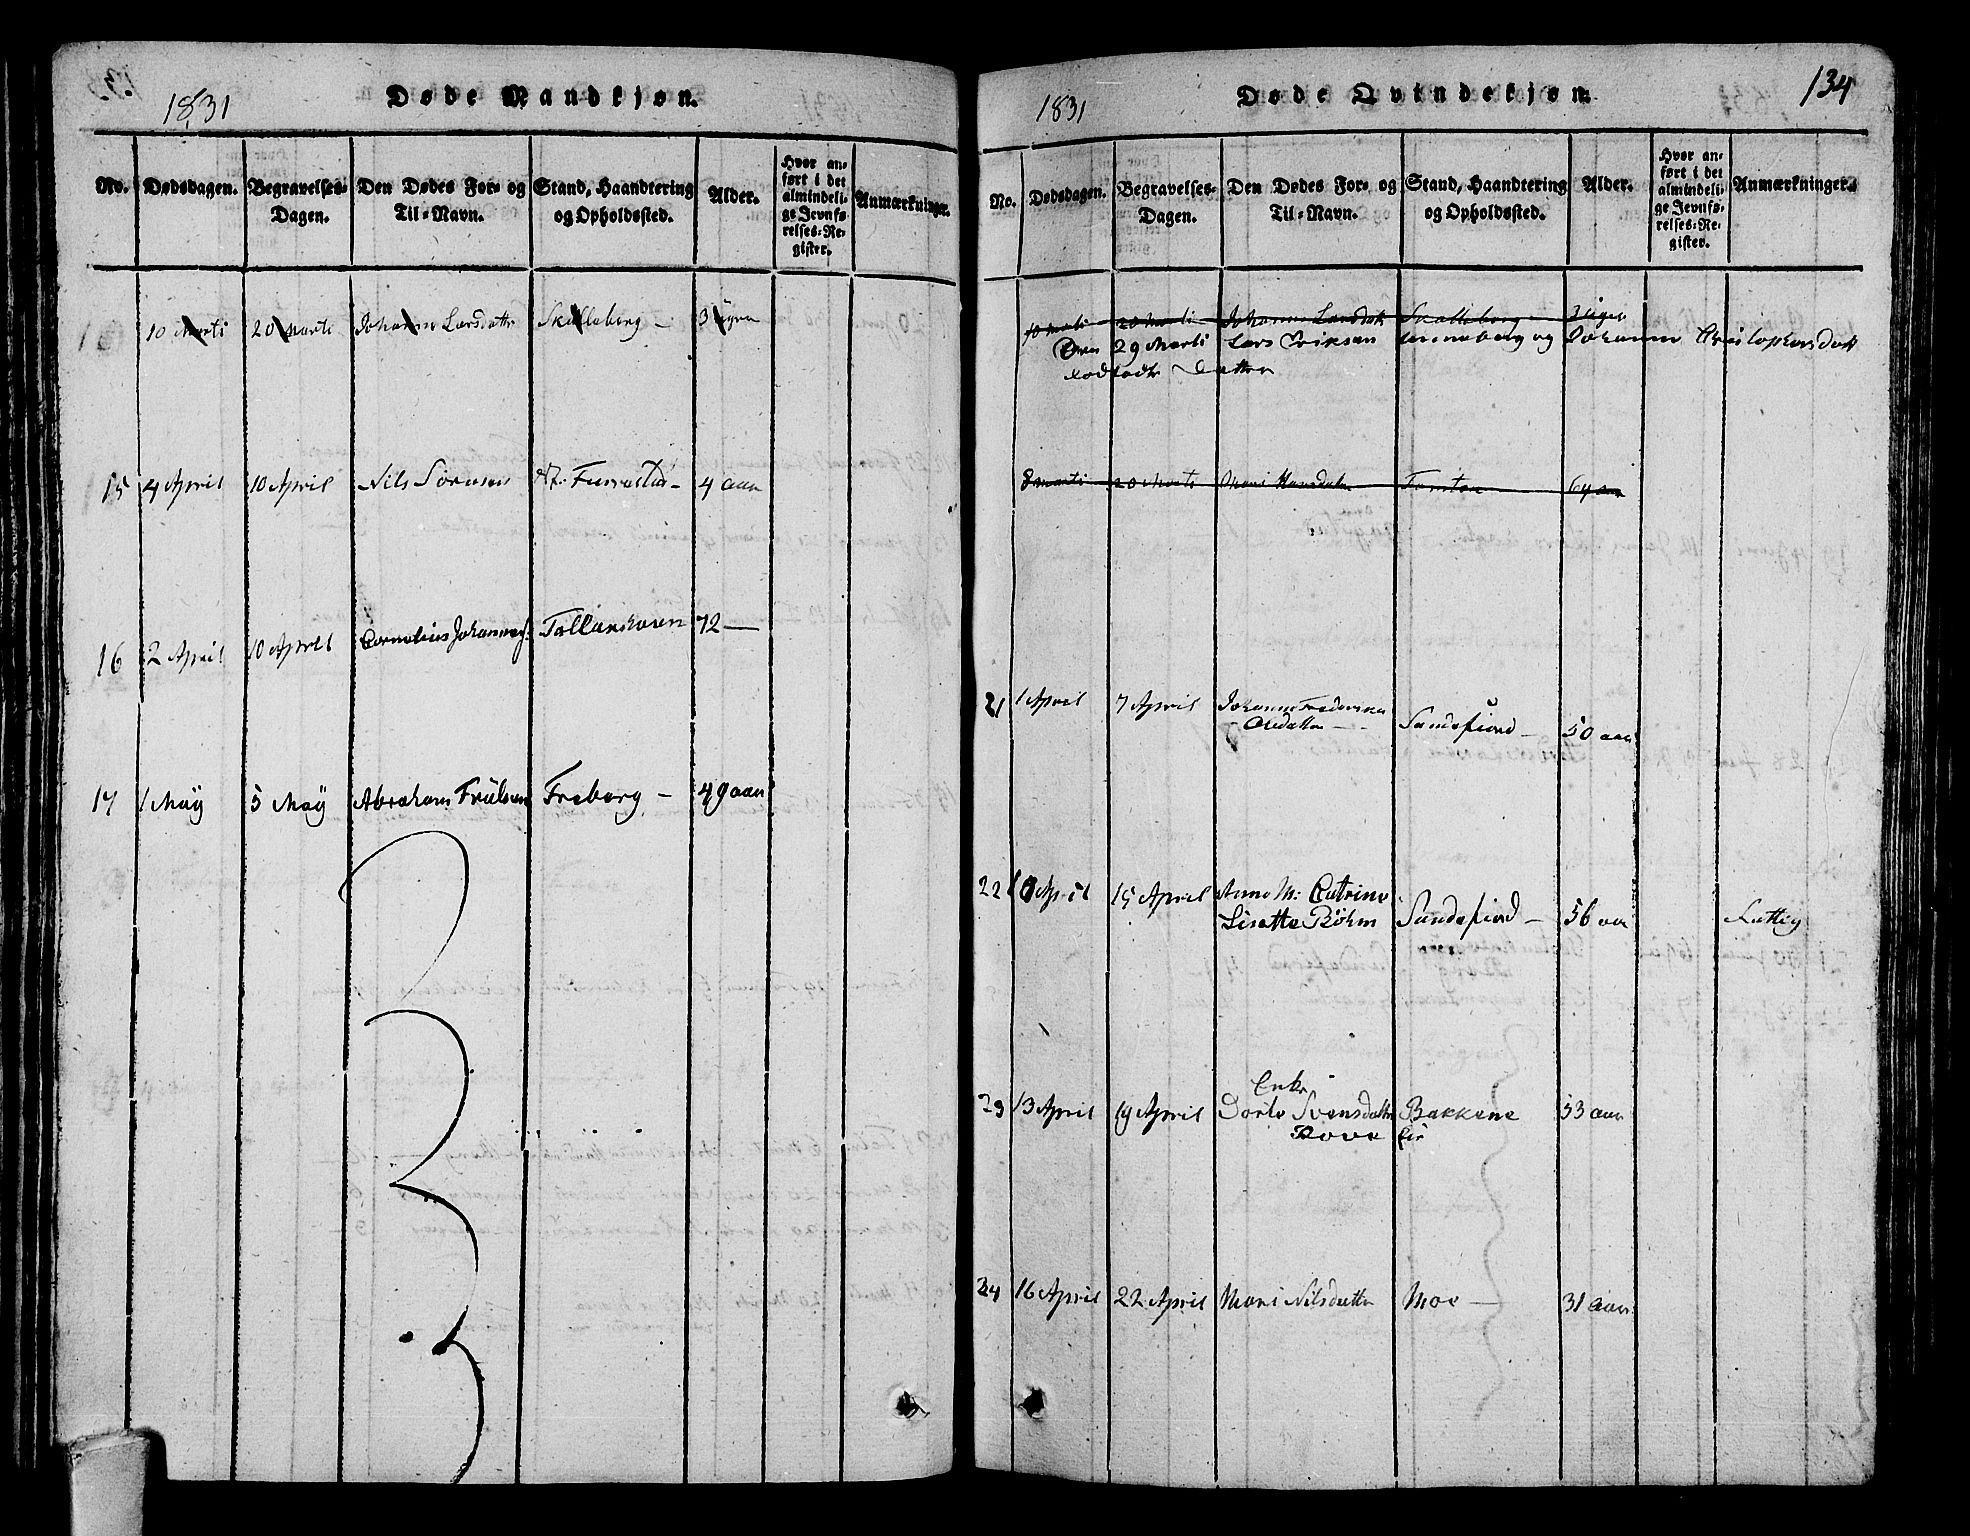 1831
Døde Mandkjøn.
No.
Dødsdagen.
Begravelses-
Dagen.
Den Dødes For- og
Til-Navn.
Stand, Haandtering
og Opholdssted.
Alder.
Hvor an-
ført i det
almindeli-
ge Jevnfø-
relses-Re-
gister.
Anmærkninger.
10 Marti 20 Marti Johanne Larsdattr Skalleberg - 3 Uger
15 4 April 10 April Nils Sörensen 4 aar
16 2 April 10 April Cornelius Johannes 72 —
17 1 Maÿ 5 Maÿ Abraham Freberg - 49 aar
1831
Døde Qvindekjøn.
134
No.
Dødsdagen.
Begravelses-
Dagen.
Den Dødes For- og
Til-Navn.
Stand, Haandtering
og Opholdssted.
Alder.
Hvor an-
ført i det
almindeli-
ge Jevnfø-
relses-Re-
gister.
Anmærkninger.
10 Marti 20 Marti Johanne Larsdatt Skalleberg 3 Uger
29 Marti Lars Eriksen og Johanne
Datter
8 Marti 20 Marti Mari Hansdatr 64 aar
21 1 April 7 April Johanne Frederikke
Olsdatter - Sandefiord - 50 aar
22 10 April 15 April Anna M: Catrine
Lisette Böhm Sandefiord - 56 aar
Enke
23 13 April 19 April Dorte Svensdatter Bakkene 53 aar
24 16 April 22 April Mari Nilsdattr Moe — 31 aar